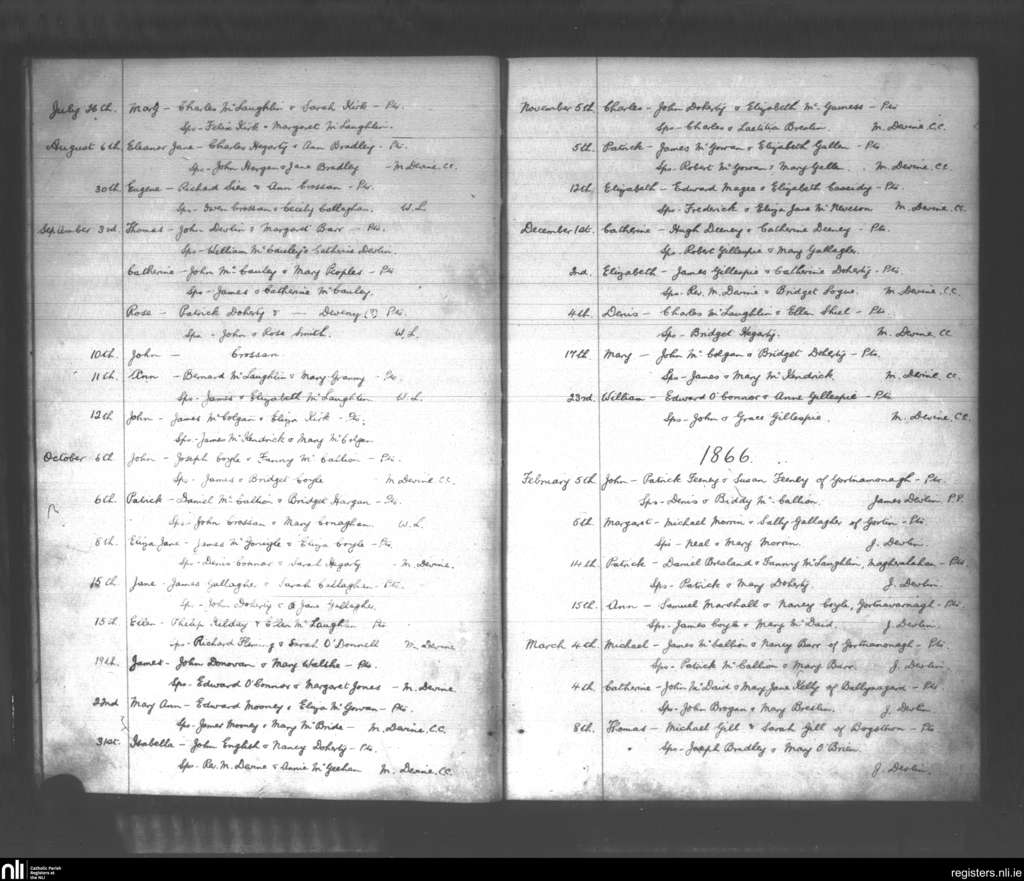 July 26th. Mary - Charles McLaughlin & Sarah Kirk - Pts.
Sps - Felix Kirk & Margaret McLaughlin.
August 6th Eleanor Jane - Charles Hegarty & Ann Bradley - Pts.
Sps - John Hargan & Jane Bradley - M. Devine. CC.
30th Eugene - Richard & Ann Crossan - Pts.
Sps - Owen Crossan & Cecily Callaghan. W.L.
September 3rd. Thomas - John Devlin & Margard Barr - Pts.
Sps - William McCauley & Catherine Devlin.
Catherine - John McCauley & Mary Peoples - Pts
Sps - James & Catherine McCauley.
Rose - Patrick Doherty & — Deveny (?) Pts.
Sps - John & Rose Smith. W.L.
10th. John — Crossan
11th. Ann - Bernard McLaughlin & Mary Granny - Pts.
Sps - James & Elizabeth McLaughlin W.L.
12th John - James McColgan & Eliza Kirk - Pts.
Sps - James McKendrick & Mary McColgan
October 6th John - Joseph Coyle & Fanny McCallion - Pts.
Sps - James & Bridget Coyle M Devine. CC.
6th Patrick - Daniel McCallion & Bridget Hargan - Pts.
Sps - John Crossan & Mary Conaghan W.L.
8th Eliza Jane - James McGonigle & Eliza Coyle - Pts.
Sps - Denis Connor & Sarah Hegarty - M. Devine.
15th Jane - James Gallagher & Sarah Callaghan - Pts.
Sps - John Doherty & Jane Gallagher.
15th Ellen - Philip Kelday & Ellen McLaughlin Pts
Sps - Richard Fleming & Sarah O'Donnell M. Devine
19th. James - John Donovan & Mary Walthe - Pts.
Sps - Edward O'Connor & Margaret Jones - M. Devine
22nd Mary Ann - Edward Mooney & Eliza McGowan - Pts.
Sps - James Mooney & Mary McBride - M. Devine, C.C.
31st. Isabella - John English & Nancy Doherty - Pts.
Sps - Rev. M. Devine & Annie McGeehan M. Devine, CC.
November 5th Charles - John Doherty & Elizabeth McGuiness - Pts
Sps - Charles & Laetitia Breslin. M. Devine C.C.
5th. Patrick - James McGowan & Elizabeth Gallen - Pts
Sps - Robert McGowan & Mary Gallen. M. Devine. CC
12th Elizabeth - Edward Magee & Elizabeth Cassidy - Pts.
Sps - Frederick & Eliza Jane McNewson M. Devine. CC.
December 1st. Catherine - Hugh Deeney & Catherine Deeney - Pts.
Sps. Robert Gillespie & Mary Gallagher
2nd. Elizabeth - James Gillespie & Catherine Doherty - Pts.
Sps - Rev. M. Devine & Bridget Logue. M Devine. C.C.
4th. Denis - Charles McLaughlin & Ellen Shiel - Pts.
Sps - Bridget Hegarty. M. Devine. CC
17th. Mary - John McColgan & Bridget Doherty - Pts.
Sps - James & Mary McKendrick. M. Devine. CC
23rd. William - Edward O'Connor & Anne Gillespie - Pts
Sps - John & Grace Gillespie. M. Devine. CC.
1866.
February 5th John - Patrick Feeney & Susan Feeney of Gortnanonagh - Pts.
Sps - Denis & Biddy McCallion. James Devlin P.P.
6th. Margaret - Michael Morrin & Sally Gallagher of Gorlin - Pts
Sps - Neal & Mary Morrin. J. Devlin.
14th Patrick - Daniel Bresland & Fanny McLaughlin, Magheralahan - Pts
Sps - Patrick & Mary Doherty. J. Devlin.
15th. Ann - Samuel Marshall & Nancy Coyle, Gortnavarnagh - Pts.
Sps - James Coyle & Mary McDaid. J. Devlin
March 4th Michael - James McCallion & Nancy Barr of Gortnanonagh - Pts.
Sps - Patrick McCallion & Mary Barr J. Devlin.
4th Catherine - John McDaid & Mary Jane Kelly of Ballynagard - Pts
Sps - John Brogan & Mary Breslin. J. Devlin.
8th. Thomas - Michael Gill & Sarah Gill of Dogstown - Pts
Sps - Joseph Bradley & Mary O'Brien.
J. Devlin.
nli Catholic Parish
Registers at
the NLI
registers.nli.ie